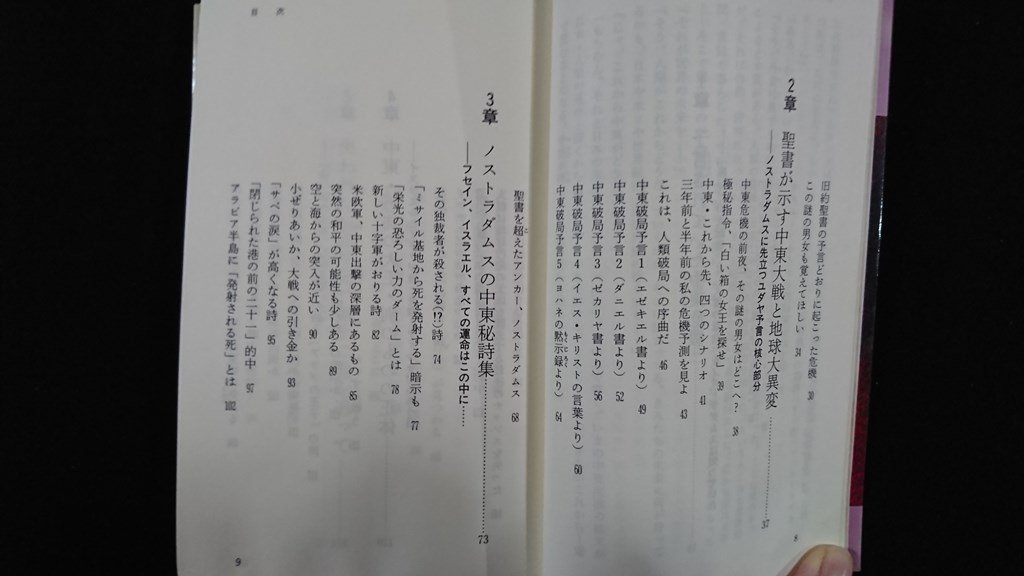 旧約聖書の予言どおりに起こった危機 30
この謎の男女も覚えてほしい 34
2章 聖書が示す中東大戦と地球大異変……………………37
――ノストラダムスに先立つユダヤ予言の核心部分
中東危機の前夜、その謎の男女はどこへ？ 38
極秘指令、「白い箱の女王を探せ」 39
中東・これから先、四つのシナリオ 41
三年前と半年前の私の危機予測を見よ 43
これは、人類破局への序曲だ 46
中東破局予言1（エゼキエル書より） 49
中東破局予言2（ダニエル書より） 52
中東破局予言3（ゼカリヤ書より） 56
中東破局予言4（イエス・キリストの言葉より） 60
中東破局予言5（ヨハネの黙示録より） 64
8
聖書を超えたアンカー、ノストラダムス 68
3章 ノストラダムスの中東秘詩集……………………73
――フセイン、イスラエル、すべての運命はこの中に……
その独裁者が殺される(!?)詩 74
「ミサイル基地から死を発射する」暗示も 77
「栄光の恐ろしい力のダーム」とは 78
新しい十字軍がおりる詩 82
米欧軍、中東出撃の深層にあるもの 85
突然の和平の可能性も少しある 89
空と海からの突入が近い 90
小ぜりあいか、大戦への引き金か 93
「サバの涙」が高くなる詩 95
「閉じられた港の前の二十一」的中 97
アラビア半島に「発射される死」とは 102
目次
9